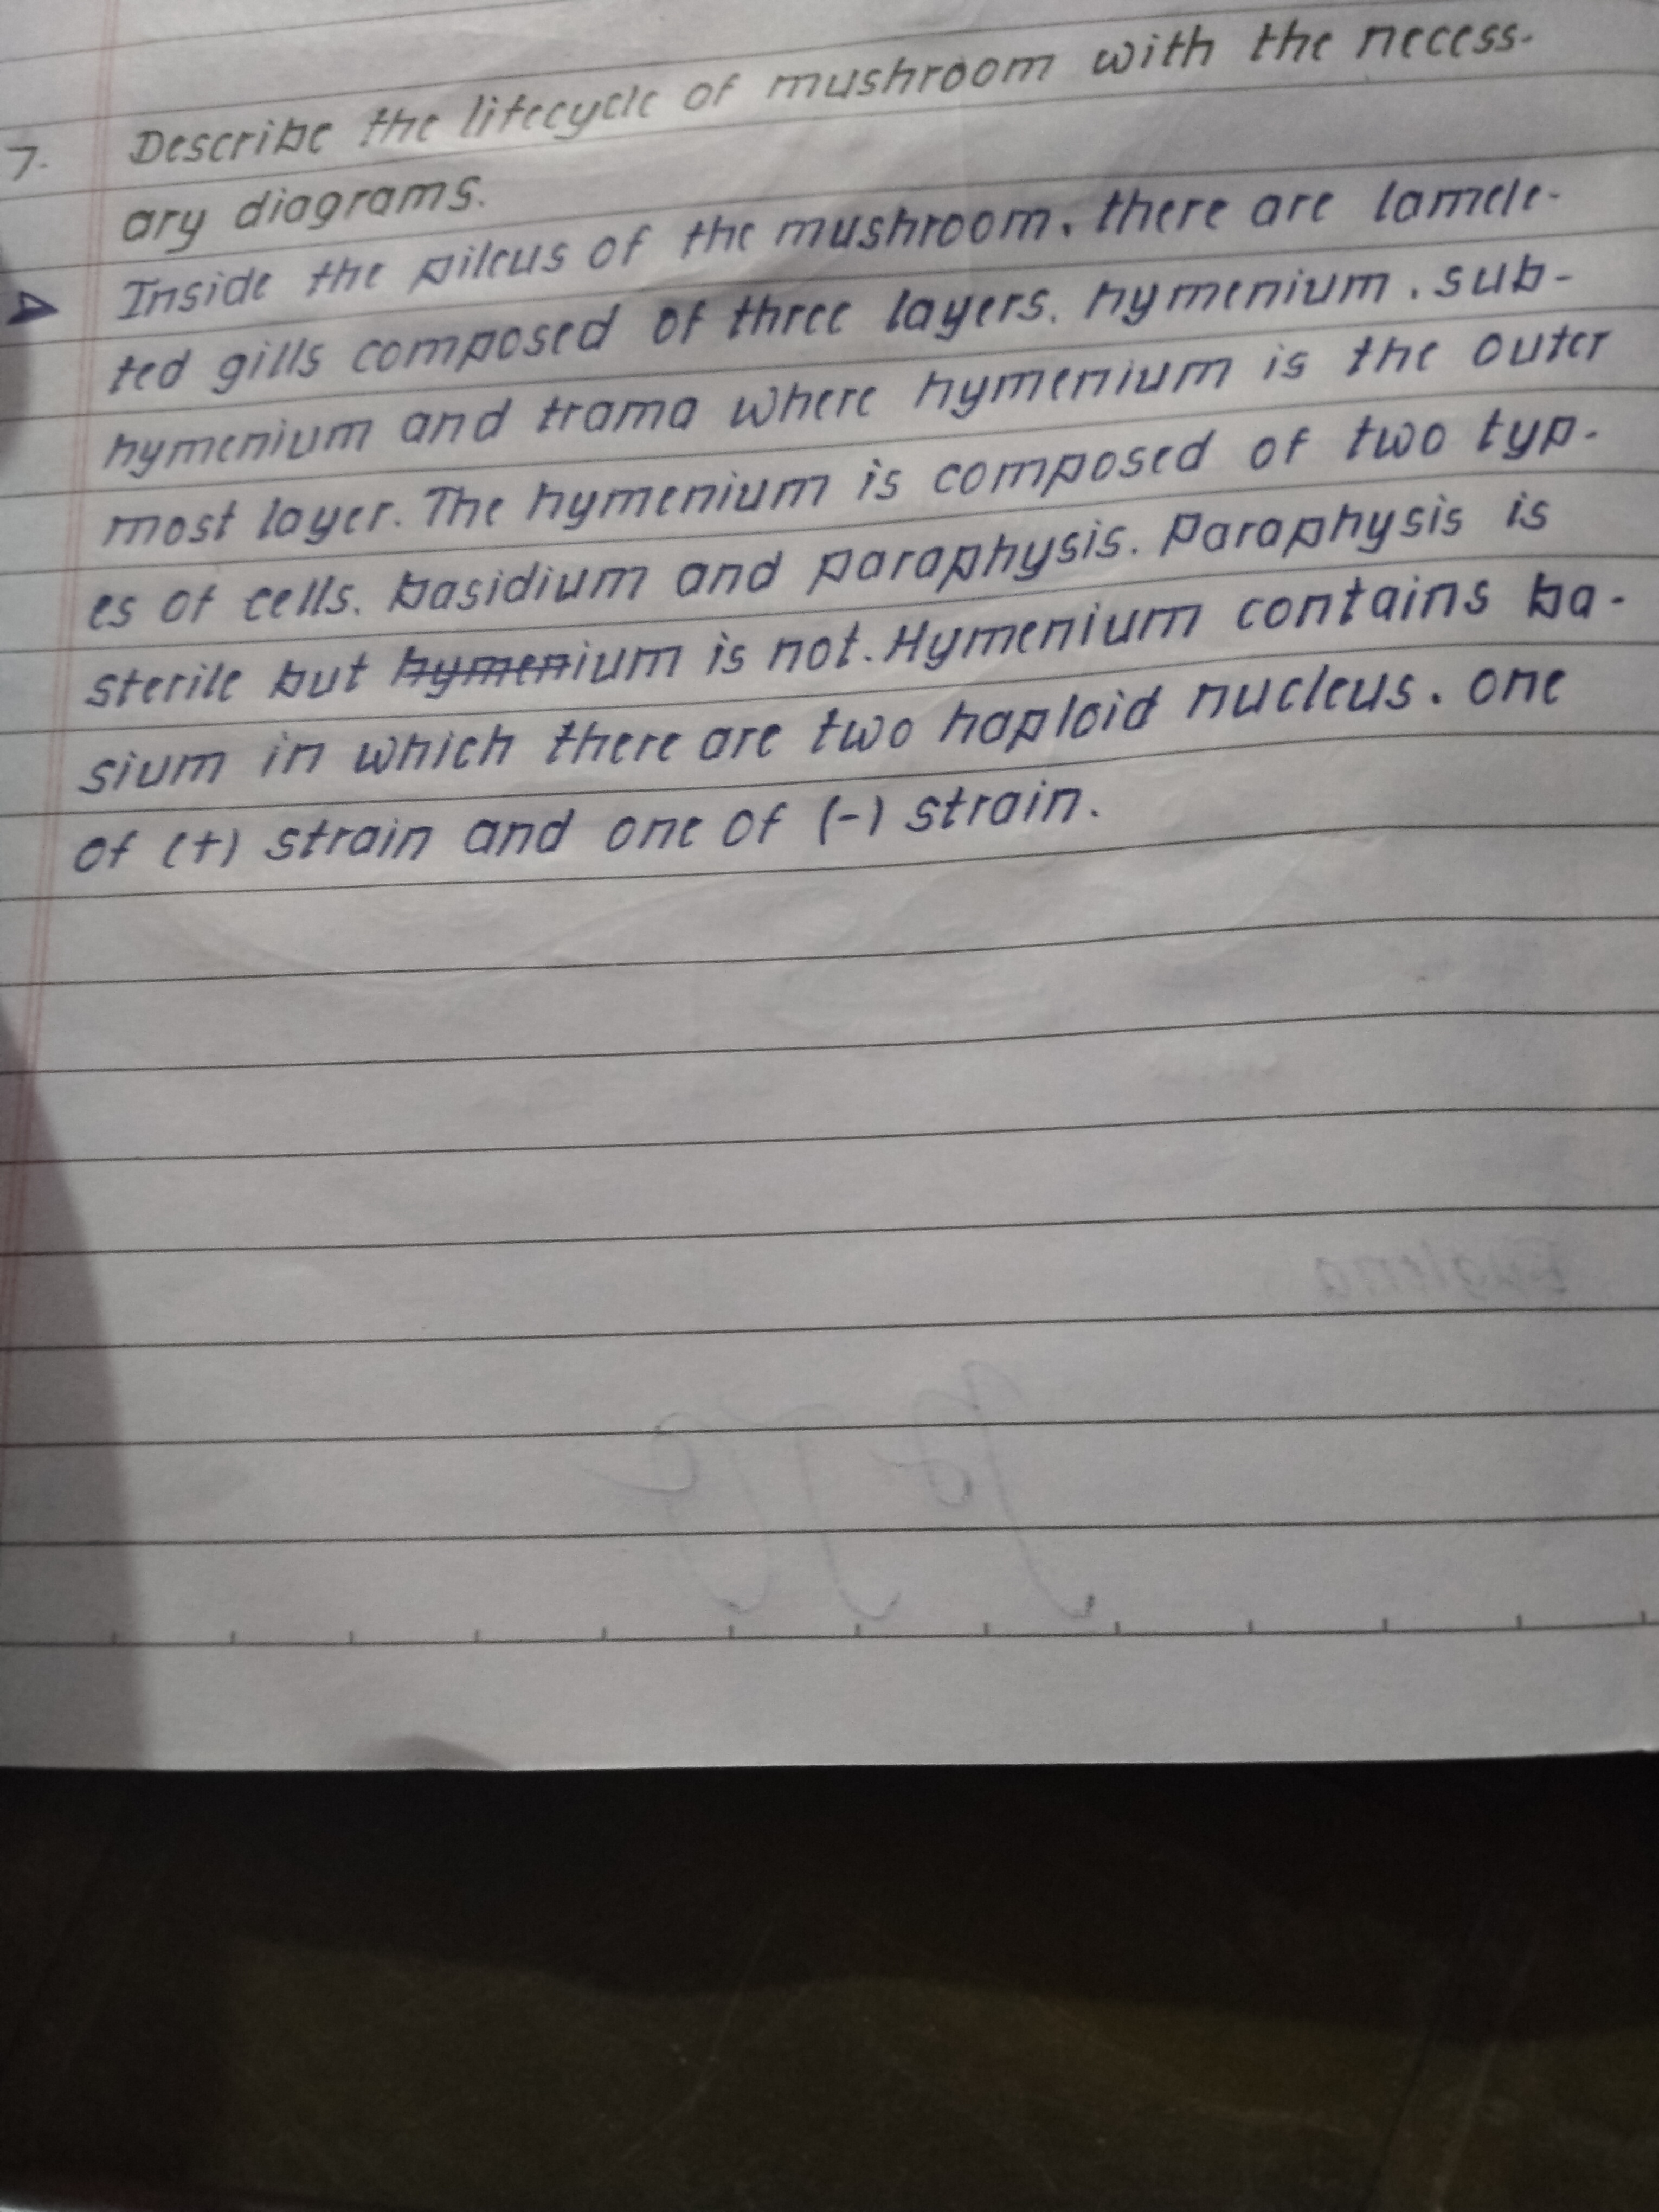 7. Describe the lifecycle of mushroom with the necess-
ary diagrams.
Inside the pileus of the mushroom, there are lamele-
ted gills composed of three layers, hymenium, sub-
hymenium and trama where hymenium is the outer
most layer. The hymenium is composed of two typ-
es of cells, basidium and paraphysis. Paraphysis is
sterile but hymenium is not. Hymenium contains ba-
sium in which there are two haploid nucleus, one
of (+) strain and one of (-) strain.
Euglena